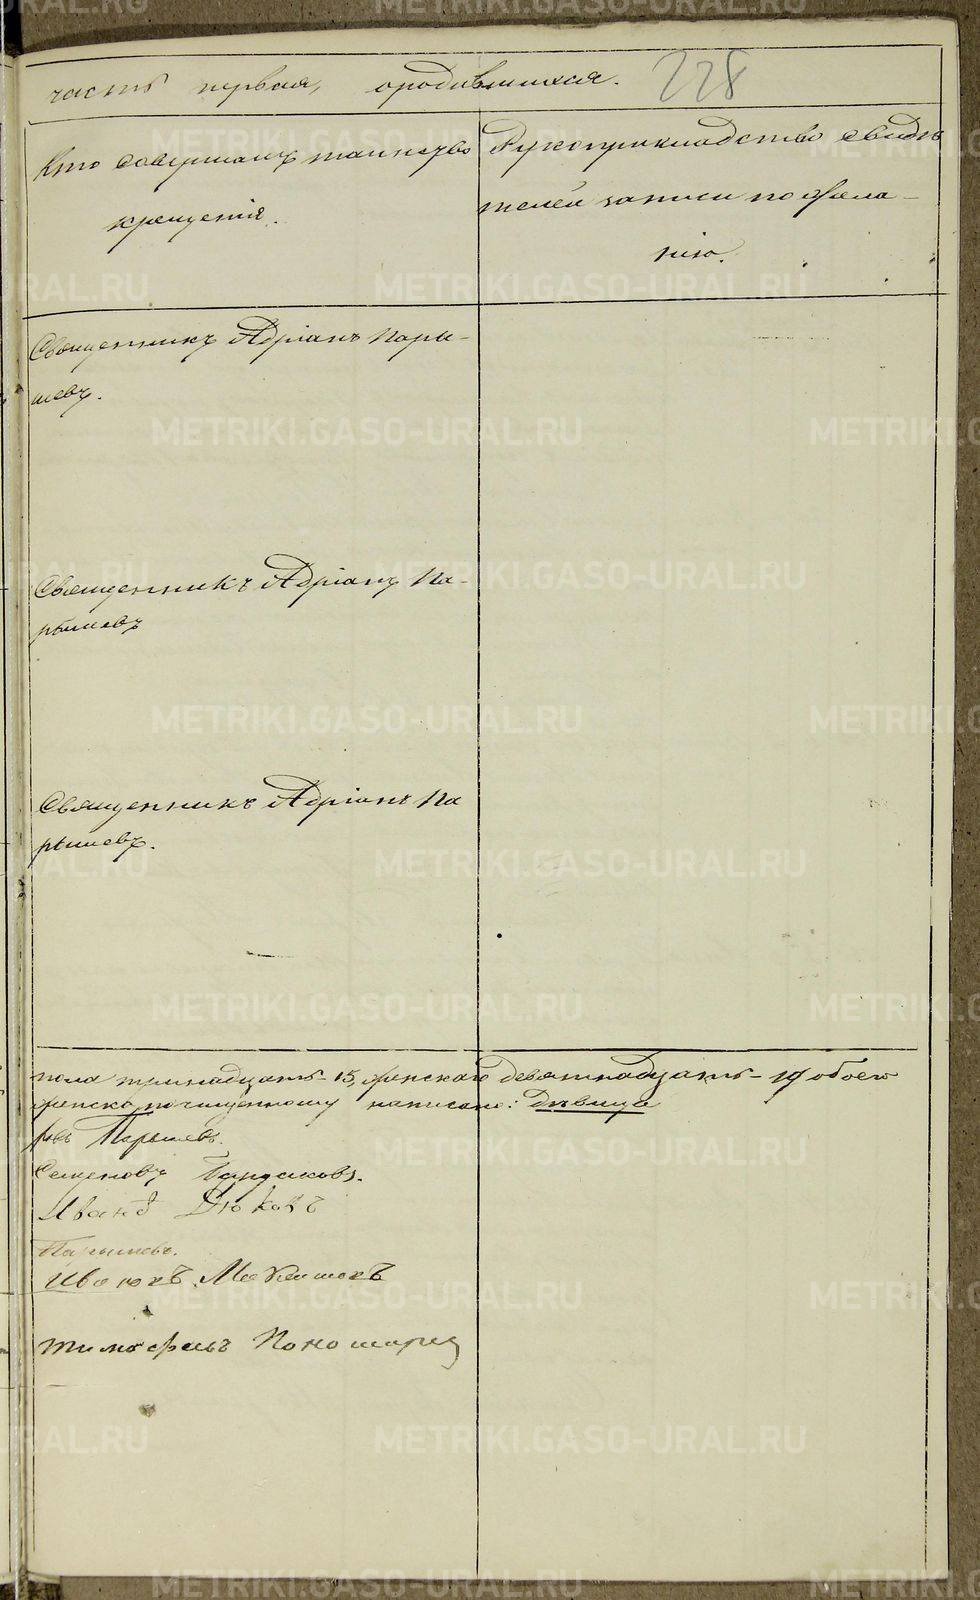 часть первая, ородившихся. 228
Кто совершалъ таинство
крещенія.
Рукоприкладство свидѣ
телей записи по жела-
нію.
Священникъ Адріанъ Пары-
шевъ.
Священникъ Адріанъ Па-
рышевъ
Священникъ Адріанъ Па
рышевъ.
пола тринадцать - 13, женскаго девятнадцать - 19 обоего
женско почищенному написано: дѣвица
Парышевъ.
Семеновъ
Иванъ Дюковъ
Парышевъ.
Тимофеевъ Пономарц
METRIKI.GASO-URAL.RU